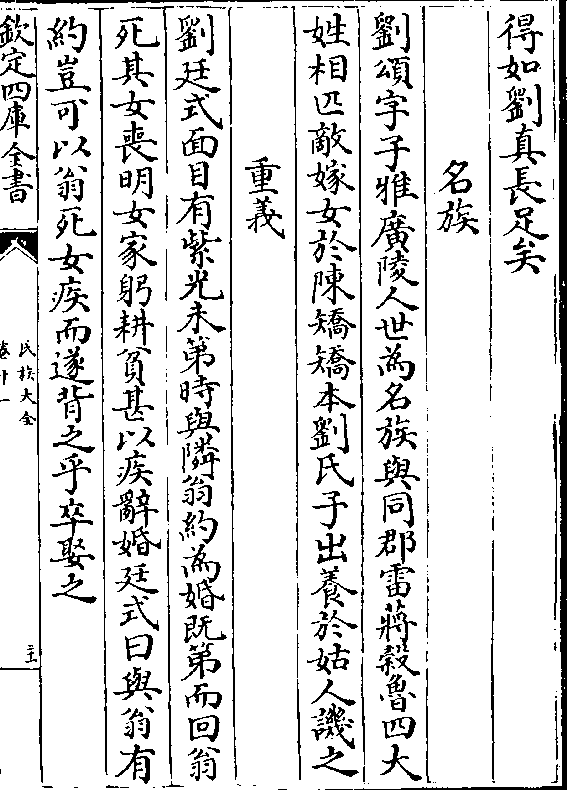 得如劉真長足矣
名族
劉頌字子雅廣陵人世為名族與同郡雷蔣穀魯四大
姓相匹敵嫁女於陳矯矯本劉氏子出養於姑人譏之
重義
劉廷式面目有紫光未第時與隣翁約為婚既第而回翁
死其女喪明女家躬耕貧甚以疾辭婚廷式曰與翁有
約豈可以翁死女疾而遂背之乎卒娶之
欽定四庫全書
氏族大全
卷十一